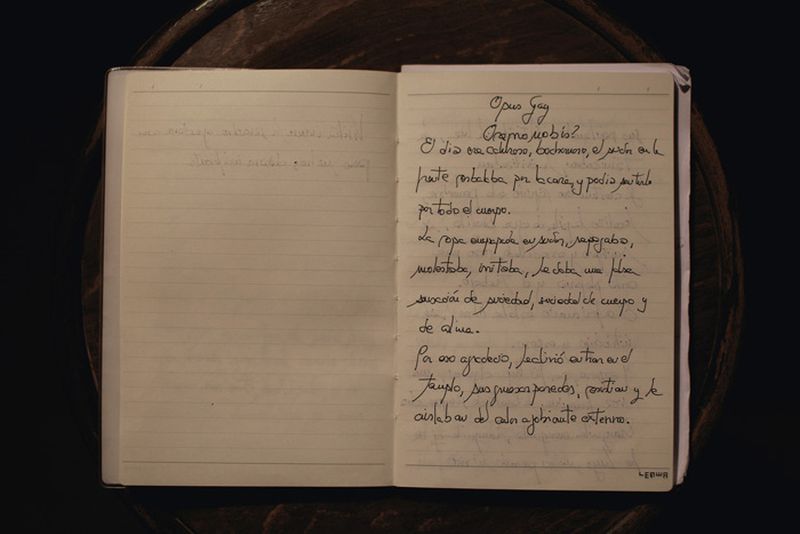 Opus Gay
Oremo nobis?
El dia era caluroso, bochornoso, el sudor en la
frente resbalaba por la cara, y podia sentirlo
por todo el cuerpo.
La ropa empapada en sudor, se pegaba,
molestaba, irritaba, le daba una falsa
sensación de suciedad, suciedad de cuerpo y
de alma.
Por eso agradeció, le alivió entrar en el
templo, sus gruesas paredes, y le
aislaban del calor agobiante externo.
LEDWR